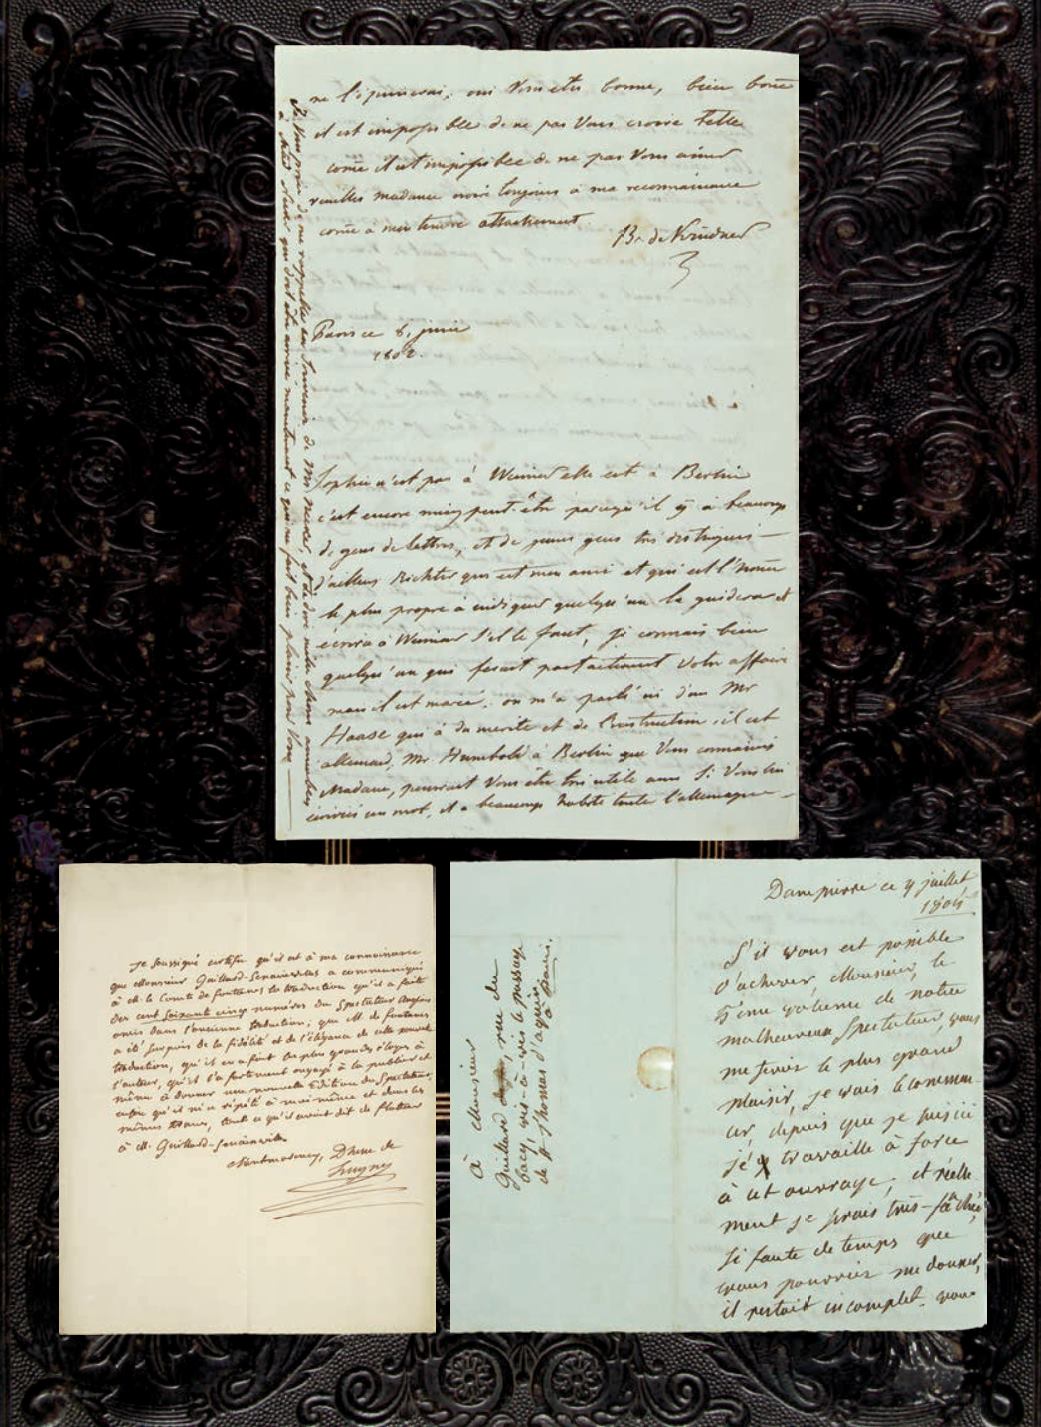 ne l'éprouverai, oui vous etes bonne, bien bonne
il est impossible de ne pas vous croire telle
come il est impossible de ne pas vous aimer
veuilles madame croire toujours a ma reconnaissance
come a mon tendre attachement.
Bne de Krüdner
Paris ce 6. juin
1802.
Sophie n'est pas à Weimar elle est à Berlin
c'est encore mieux peut-être parcequ'il y a beaucoup
de gens de lettres, et de jeunes gens très distingués
d'ailleurs Richter qui est mon ami et qui est l'home
le plus propre à indiquer quelqu'un la guidera et
écrira à Weimar s'il le faut, je connais bien
quelqu'un qui ferait parfaitement votre affaire
mais il est marié. on m'a parlé ici d'un Mr
Haase qui à du merite et de l'instruction. il est
allemand, Mr. Humbold à Berlin que vous connaissés
Madame, pourrait vous être très utile aussi si vous lui
écriviés un mot, il a beaucoup habité toute l'allemagne
Je vous prie de me rappeller au souvenir de Mr Necker, et de dire mille choses aimables
à qui doit être arrivé maintenant ce qui me fait bien plaisir pour vous
Je soussigné certifie qu'il est à ma connoissance
que Monsieur Guillard-Senainville a communiqué
à M. le Comte de fontanes la traduction qu'il a faite
des cent soixante cinq numéros du Spectateur Anglois
omis dans l'ancienne traduction; que M. de fontanes
a été surpris de la fidélité et de l'élégance de cette nouvelle
traduction, qu'il en a fait les plus grands éloges à
l'auteur, qu'il l'a fortement engagé à la publier et
même à donner une nouvelle Edition du Spectateur,
enfin qu'il m'a répété à moi-même et dans les
mêmes termes, tout ce qu'il avoit dit de flatteur
à M. Guillard-Senainville
Montmorency, Duc de
Luynes
à Monsieur
Guillard, rue du
bacq, vis-à-vis le passage
de St Thomas d'aquin
à Paris.
Dampierre ce 4 juillet
1804
S'il vous est possible
d'achever, Monsieur, le
volume de notre
malheureux Spectateur, vous
me feriez le plus grand
plaisir, je vais le commen-
cer, depuis que je suis ici
j'ai travaillé à force
à cet ouvrage, et réelle-
ment je serais très-fâchée,
si faute de temps que
vous pourriez me donner,
il restait incomplet. vous